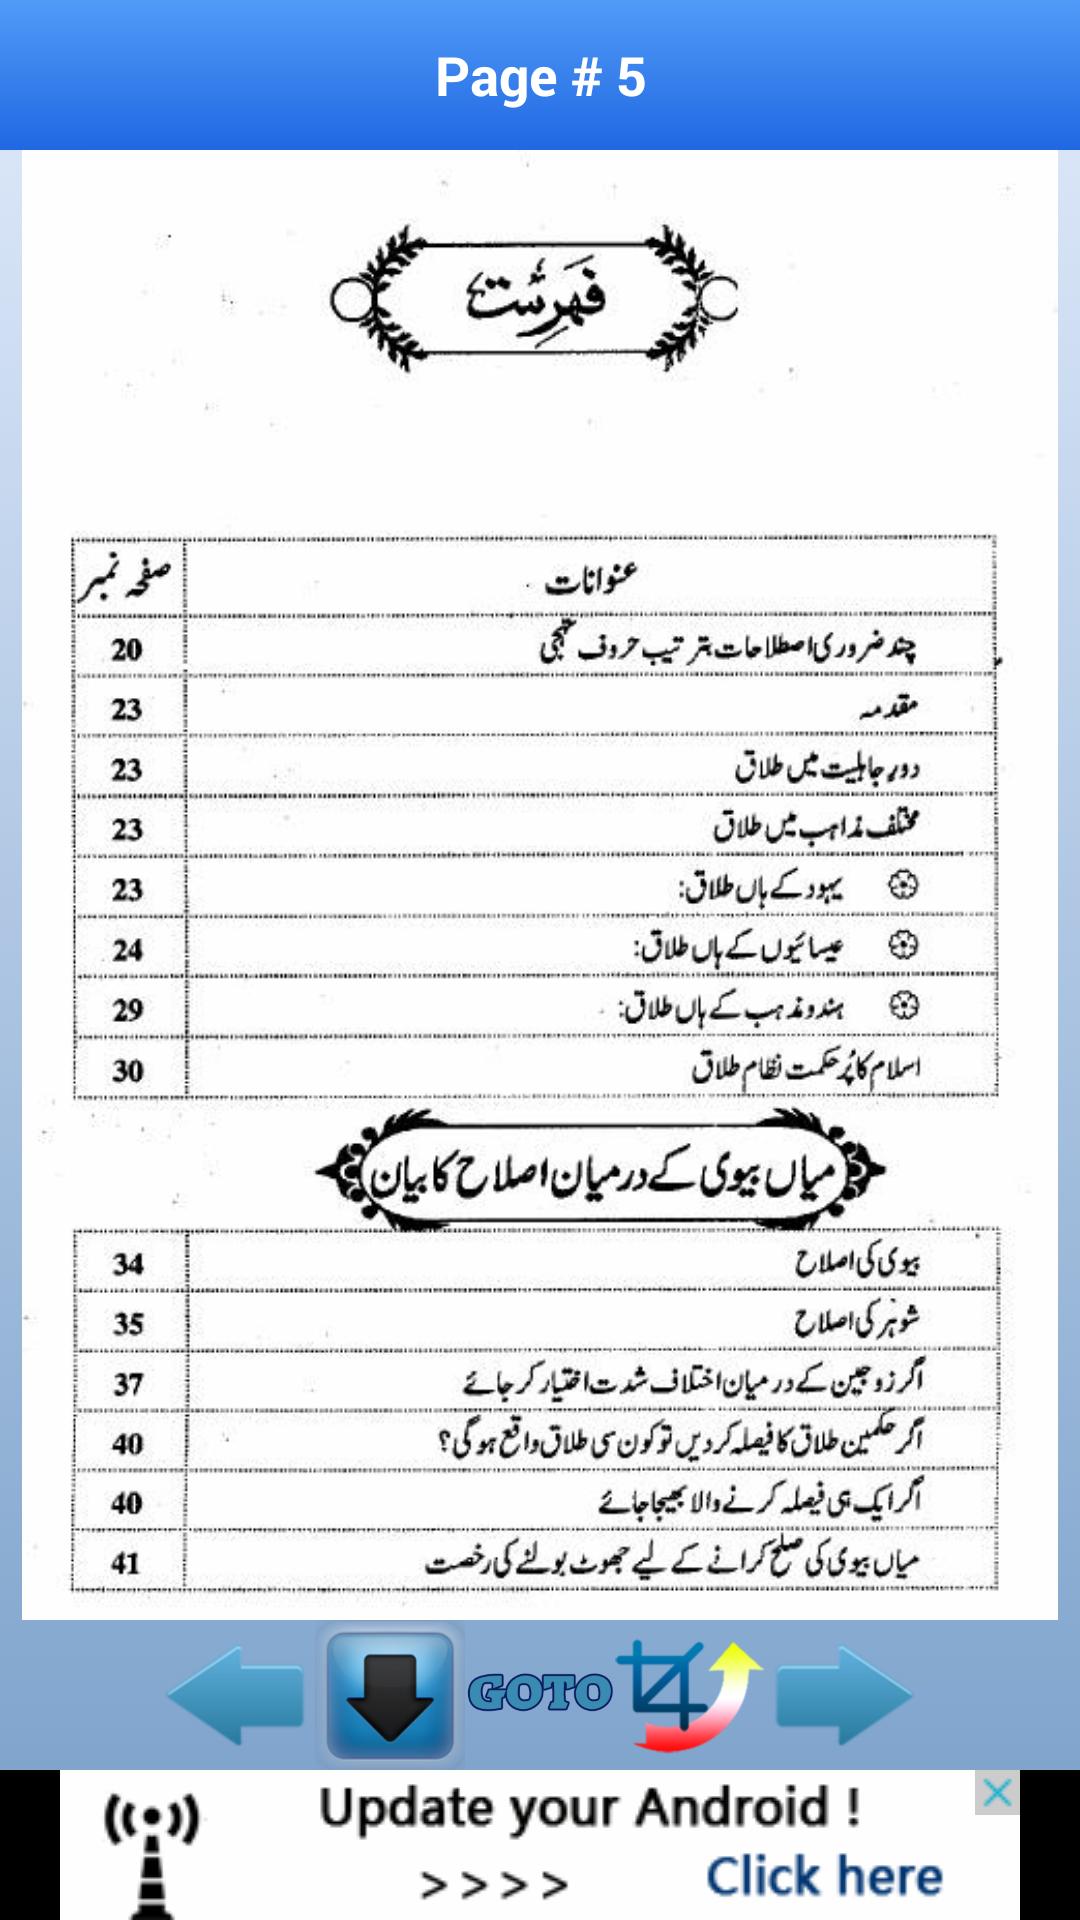 Page # 5
فہرست
عنوانات صفحہ نمبر
چند ضروری اصطلاحات بترتیب حروف تہجی 20
مقدمہ 23
دور جاہلیت میں طلاق 23
مختلف مذاہب میں طلاق 23
یہود کے ہاں طلاق: 23
عیسائیوں کے ہاں طلاق: 24
ہندو مذہب کے ہاں طلاق: 29
اسلام کا پُر حکمت نظام طلاق 30
میاں بیوی کے درمیان اصلاح کا بیان
بیوی کی اصلاح 34
شوہر کی اصلاح 35
اگر زوجین کے درمیان اختلاف شدت اختیار کر جائے 37
اگر حکمین طلاق کا فیصلہ کر دیں تو کون سی طلاق واقع ہو گی؟ 40
اگر ایک ہی فیصلہ کرنے والا بھیجا جائے 40
میاں بیوی کی صلح کرانے کے لیے جھوٹ بولنے کی رخصت 41
GOTO
Update your Android !
>>>> Click here